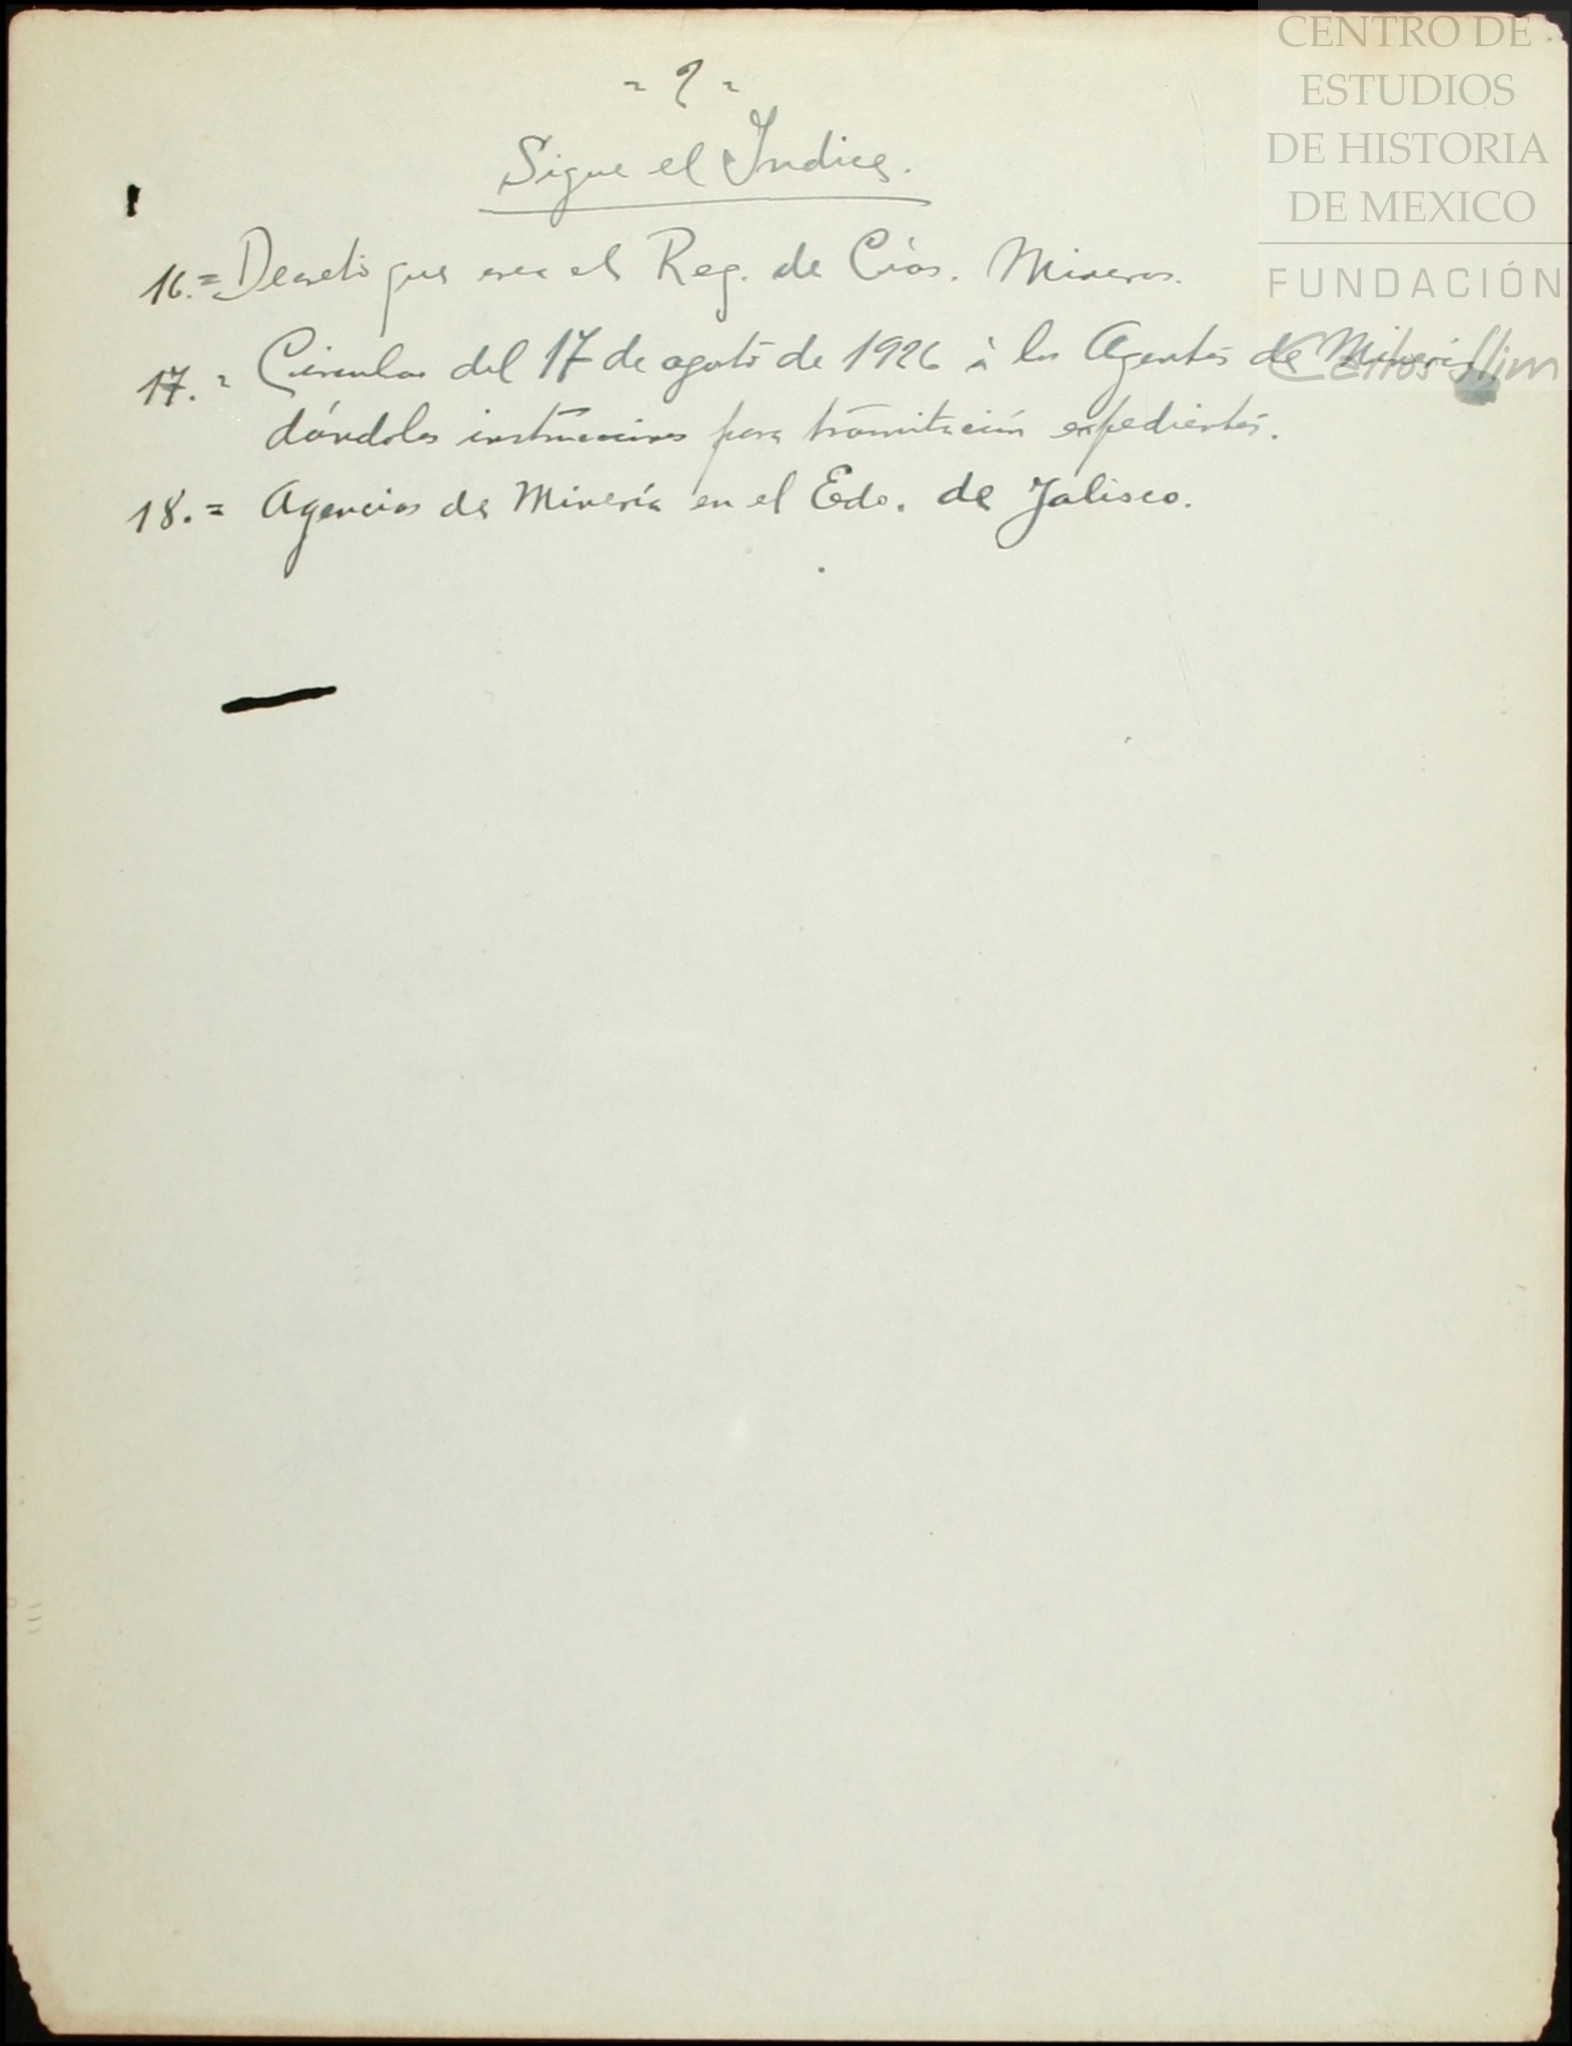 CENTRO DE
ESTUDIOS
DE HISTORIA
DE MEXICO
FUNDACIÓN
Carlos Slim
- 2 -
Sigue el Indice.
16.= Decreto que crea el Reg. de Cías. Mineras.
17.= Circular del 17 de agosto de 1926 à los Agentes de Minería,
dándoles instrucciones para tramitación expedientes.
18.= Agencias de Minería en el Edo. de Jalisco.